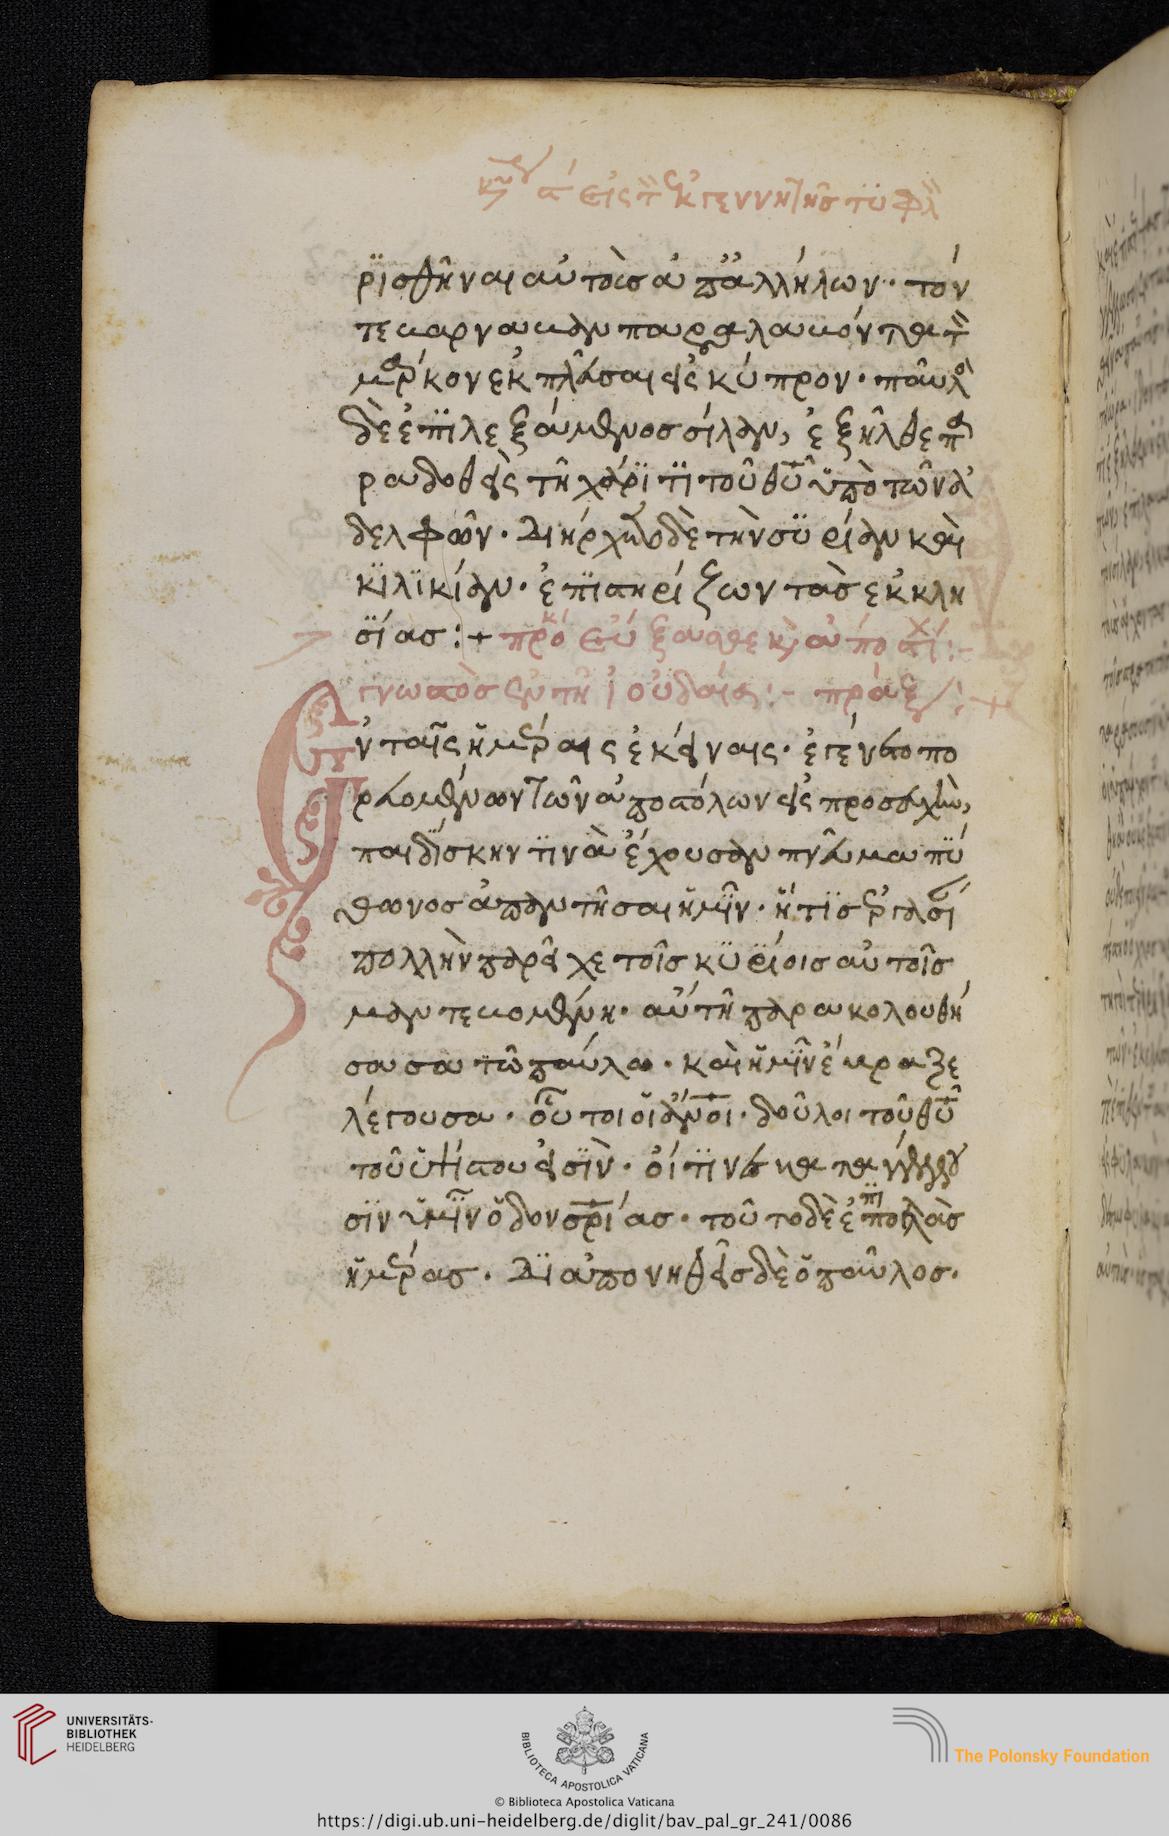 εἰς τ ἐκ γεννητῆς τϋφλ
ρϊσθῆναι αὐτοὺσ ἀπ᾽ ἀλλήλων· τόν
τε βαρναβαν παραλαβόντα τ
μάρκον ἐκπλεῦσαι εἰς κύπρον· παῦλ
δὲ ἐπϊλεξάμενοσ σίλαν, ἐξῆλθε πα
ραδοθεὶς τῆ χάρϊτϊ τοῦ θῦ ὑπὸ τῶν ἀ
δελφῶν· διήρχετο δὲ τὴν σϋρίαν καὶ
κϊλϊκίαν· ἐπϊστηρίζων τὰσ ἐκκλη
σϊάσ :+
γνωστὸσ ἐν τῆ ἰουδαία :– πράξ :+
Ἐν ταῖς ἡμέραις ἐκείναις· ἐγένετο πο
ρευομένων τῶν ἀποστόλων εἰς προσευχὴν,
παιδΐσκην τϊνὰ ἔχουσαν πνεῦμα πϋ
θωνοσ ἀπαντῆσαι ἡμῖν· ἥτϊσ ἐργασί
πολλὴν παρεῖχε τοῖσ κϋρίοισ αὐτοῖσ
μαντευομένη· αὕτη παρακολουθή
σασα τῶ παύλω· καὶ ἡμῖν ἔκραζε
λέγουσα· οὗτοι οἱ ἄνοι· δοῦλοι τοῦ θῦ
τοῦ ὑψίστου εἰσϊν· οἵτϊνες καταγγέλλου
σϊν ὑμῖν ὁδον σρίασ· τοῦτο δὲ ἐποίει ἐπϊ πολλὰσ
ἡμέρασ· δϊαπονηθεὶσ δὲ ὁ παῦλοσ·
UNIVERSITÄTS-
BIBLIOTHEK
HEIDELBERG
BIBLIOTECA APOSTOLICA VATICANA
The Polonsky Foundation
© Biblioteca Apostolica Vaticana
https://digi.ub.uni-heidelberg.de/diglit/bav_pal_gr_241/0086